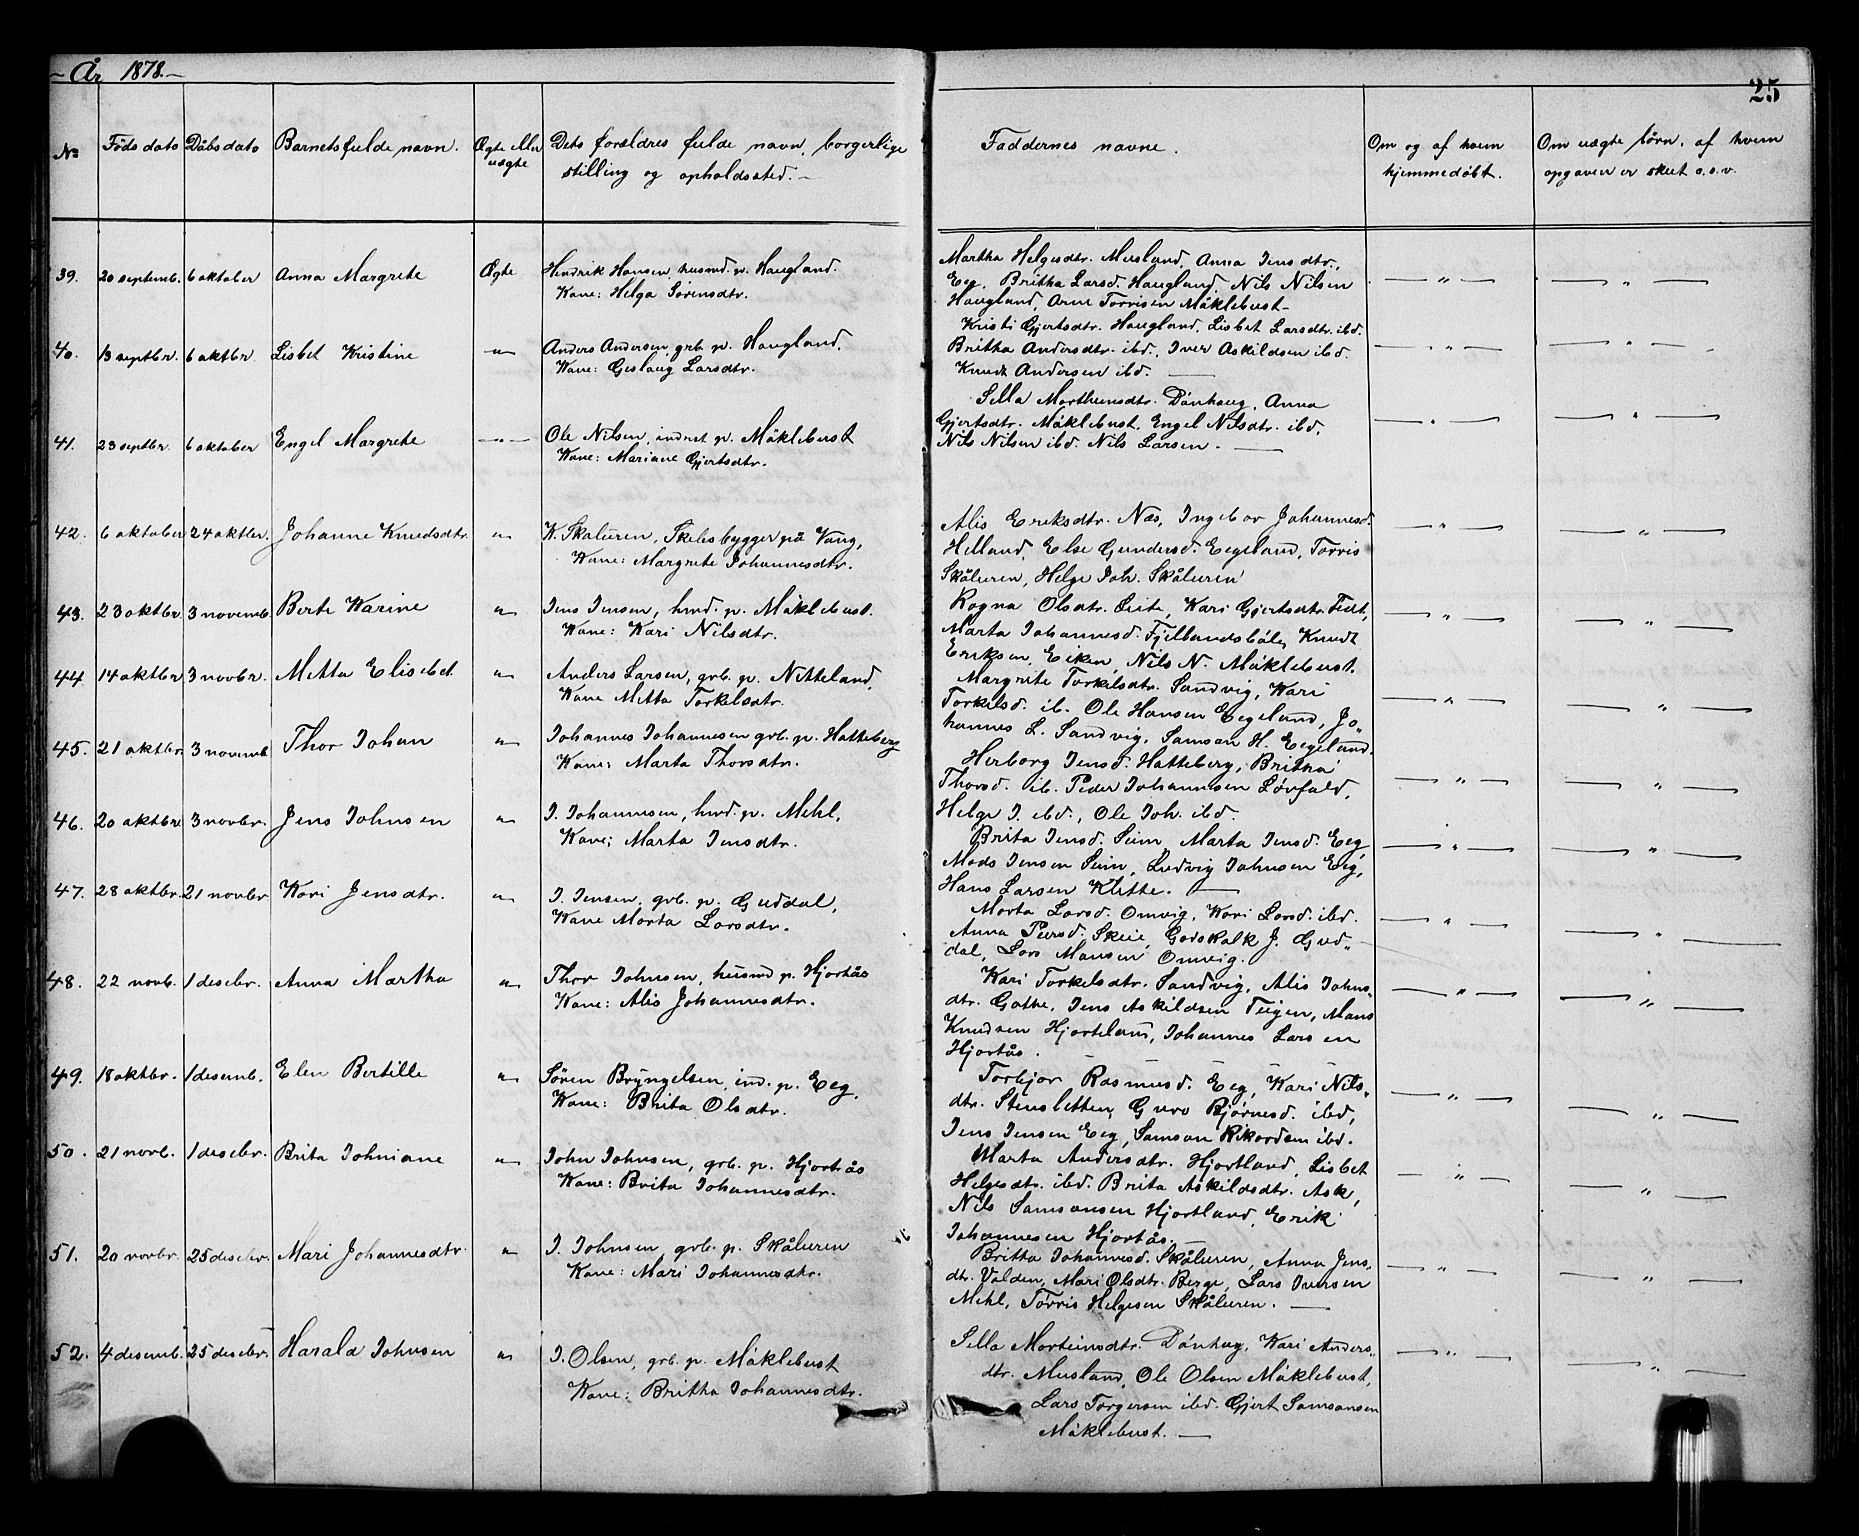 - År 1878. -
25
No
Føds dato
Dåbs dato
Barnets fulde navn.
Ægte eller uægte
Dets forældres fulde navn, borgerlige
stilling og opholdssted. -
Faddernes navne.
Om og af hvem
hjemmedøbt.
Om uægte børn, af hvem
opgaven er skeet o.s.v.
39. 20 septemb. 6 oktober Anna Margrete Ægte Hendrik Hansen, husmd. p. Haugland.
Kone: Helga Sørensdtr.
Martha Helgesdtr. Musland, Anna Jensdtr.,
Eeg, Britha Larsd. Haugland, Nils Nilsen
Haugland, Arne Torrisen Mäklebust -
40. 13 septbr. 6 oktbr. Lisbet Kristine " Anders Andersen, grb. p. Haugland.
Kone: Geslaug Larsdtr.
Kristi Gjertsdtr. Haugland, Lisbet Larsdtr. ibd.
Britha Andersdtr. ibd., Iver Askildsen ibd.
Knudt Andersen ibd. —
41. 23 septbr. 6 oktober Engel Margrete " Ole Nilsen, inderst p. Mäklebust
Kone: Mariane Gjertsdtr.
Sella Mortheinsdtr. Dånhaug, Anna
Gjertsdtr. Mäklebust, Engel Nilsdtr. ibd,
Nils Nilsen ibd. Nils Larsen. —
42. 6 oktober 24 oktbr. Johanne Knudsdtr. " K. Skaluren, Skibsbygger på Vang,
Kone: Margrete Johannesdtr.
Alis Eriksdtr. Næs, Ingebor Johannesd.
Helland, Else Gundersd. Eegeland, Torris
Skåluren, Helge Joh. Skåluren
43. 23 oktbr. 3 novemb. Berte Karine " Jens Jensen, hmd. p. Mäklebust.
Kone: Kari Nilsdtr.
Ragna Olsdtr. Leite, Kari Gjertsdtr. Fedt,
Marta Johannesd. Fjellandsbøle, Knudt
Eriksen, Eiken, Nils N. Mäklebust.
44 14 oktbr 3 novbr. Metta Elisebet " Anders Larsen, grb. p. Netteland,
Kone Metta Torkelsdtr.
Margrite Torkilsdtr. Sandvig, Kari
Torkilsd. ib. Ole Hansen Eegeland, Jo„
hannes L. Sandvig, Samson H. Eegeland.
45. 21 oktbr. 3 novemb Thor Johan " Johannes Johannesen grb. p. Hatteberg
Kone: Marta Thorsdtr.
Herborg Jensd. Hatteberg, Britha
Thorsd. ib. Peder Johannesen Løvfald,
Helge J. ibd., Ole Joh. ibd.
46. 20 oktbr. 3 novbr. Jens Johnsen " J. Johannesen, hmd. p. Mehl,
Kone; Marta Jensdtr.
Brita Jensd. Seim, Marta Jensd. Eeg
Mads Jensen Seim, Ludvig Johnsen Eeg,
Hans Larsen Klette. —
47. 28 oktbr. 21 novbr. Kari Jensdtr. " J. Jensen, grb. p. Guddal,
Kone Marta Larsdtr.
Marta Larsd. Omvig, Kari Larsd. ibd.
Anna Peersd. Skeie, Godskalk J. Gud„
dal, Lars Mansen Omvig.
48. 22 novb. 1 desebr. Anna Martha " Thor Johnsen, husmd p. Hjortås
Kone: Alis Johannesdtr.
Kari Torkelsdtr. Sandvig, Alis Johns„
dtr. Gothe, Jens Askildsen Teigen, Mans
Knudsen Hjorteland, Johannes Larsen
Hjortås.
49. 18 oktbr. 1 desemb. Elen Bertille " Søren Bryngelsen, ind. p. Eeg,
Kone: Brita Olsdtr.
Torbjor Rasmusd. Eeg, Kari Nils„
dtr. Stensletten, Guro Bjørnesd. ibd,
Jens Jensen Eeg, Samson Rikordsen ibd.
50. 21 novb. 1 desebr. Brita Johniane " John Johnsen, grb. p. Hjortås
Kone: Brita Johannesdtr.
Marta Andersdtr. Hjortland, Lisbet
Helgesdtr. ibd. Brita Askildsdtr. Ask,
Nils Samsonsen Hjortland, Erik
Johannesen Hjortås.
51. 20 novbr. 25 desebr. Mari Johannesdtr. " J. Johnsen, grb. p. Skåluren
Kone: Mari Johannesdtr.
Britha Johannesd. Skåluren, Anna Jens„
dtr. Valden, Mari Olsdtr. Berge, Lars Iversen
Mehl, Tørris Helgesen Skåluren. —
52. 4 desemb. 25 desebr. Harald Johnsen " J. Olsen, grb. p. Mäklebust
Kone: Britha Johannesdtr.
Sella Morteinsdtr. Dånhug, Kari Anders„
dtr. Musland, Ole Olsen Mäklebust,
Lars Torgersen ibd. Gjert Samsonsen
Mäklebust. —